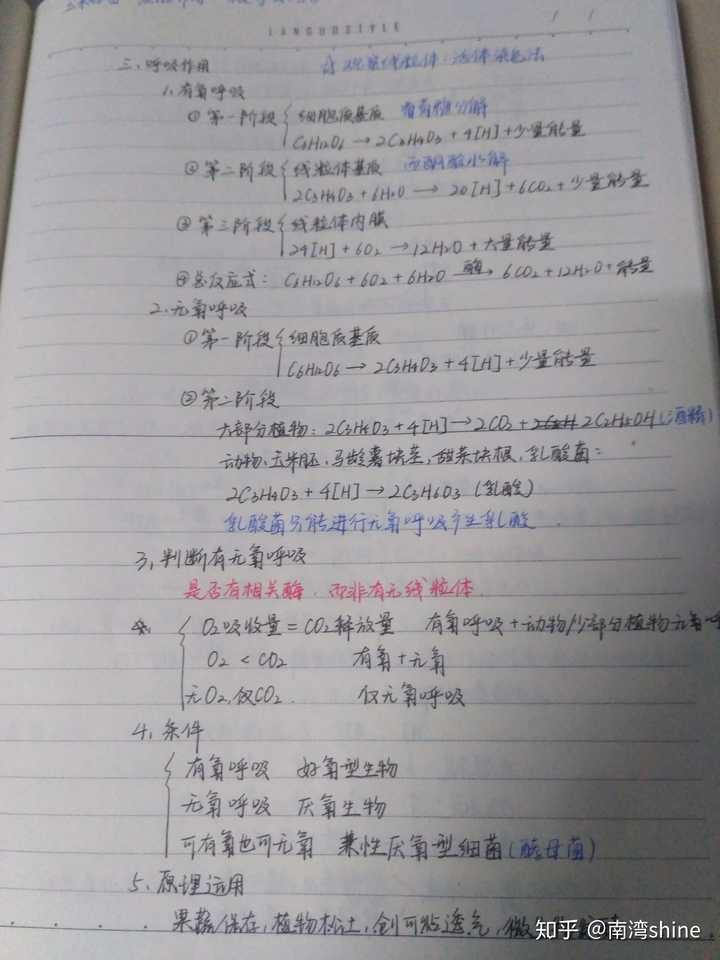 LANGUOSTYLE
三、呼吸作用 观察线粒体:活体染色法
1、有氧呼吸
①第一阶段 细胞质基质 葡萄糖分解
C6H12O6 → 2C3H4O3 + 4[H] + 少量能量
②第二阶段 线粒体基质 丙酮酸水解
2C3H4O3 + 6H2O → 20[H] + 6CO2 + 少量能量
③第三阶段 线粒体内膜
24[H] + 6O2 → 12H2O + 大量能量
④总反应式: C6H12O6 + 6O2 + 6H2O 酶→ 6CO2 + 12H2O + 能量
2、无氧呼吸
①第一阶段 细胞质基质
C6H12O6 → 2C3H4O3 + 4[H] + 少量能量
②第二阶段
大部分植物: 2C3H4O3 + 4[H] → 2CO2 + 2C2H5OH (酒精)
动物、玉米胚,马龄薯块茎,甜菜块根,乳酸菌:
2C3H4O3 + 4[H] → 2C3H6O3 (乳酸)
乳酸菌只能进行无氧呼吸产生乳酸
3、判断有无氧呼吸
是否有相关酶,而非有无线粒体.
O2吸收量 = CO2释放量 有氧呼吸 + 动物/少部分植物无氧呼
O2 < CO2 有氧 + 无氧
无O2,仅CO2. 仅无氧呼吸
4、条件
有氧呼吸 好氧型生物
无氧呼吸 厌氧生物
可有氧也可无氧 兼性厌氧型细菌(酵母菌)
5、原理运用
果蔬保存,植物松土,创可贴透气,微
知乎 @南湾shine